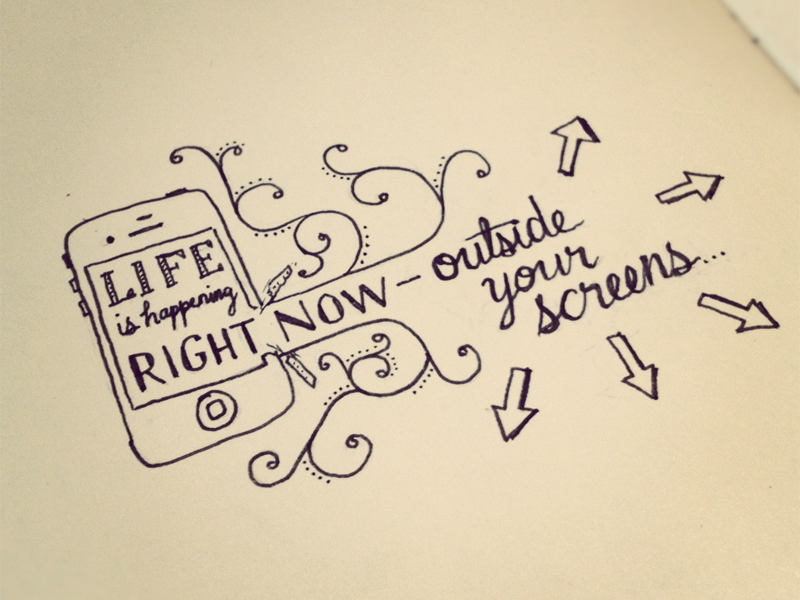 LIFE
is happening
RIGHT NOW - outside
your
screens...